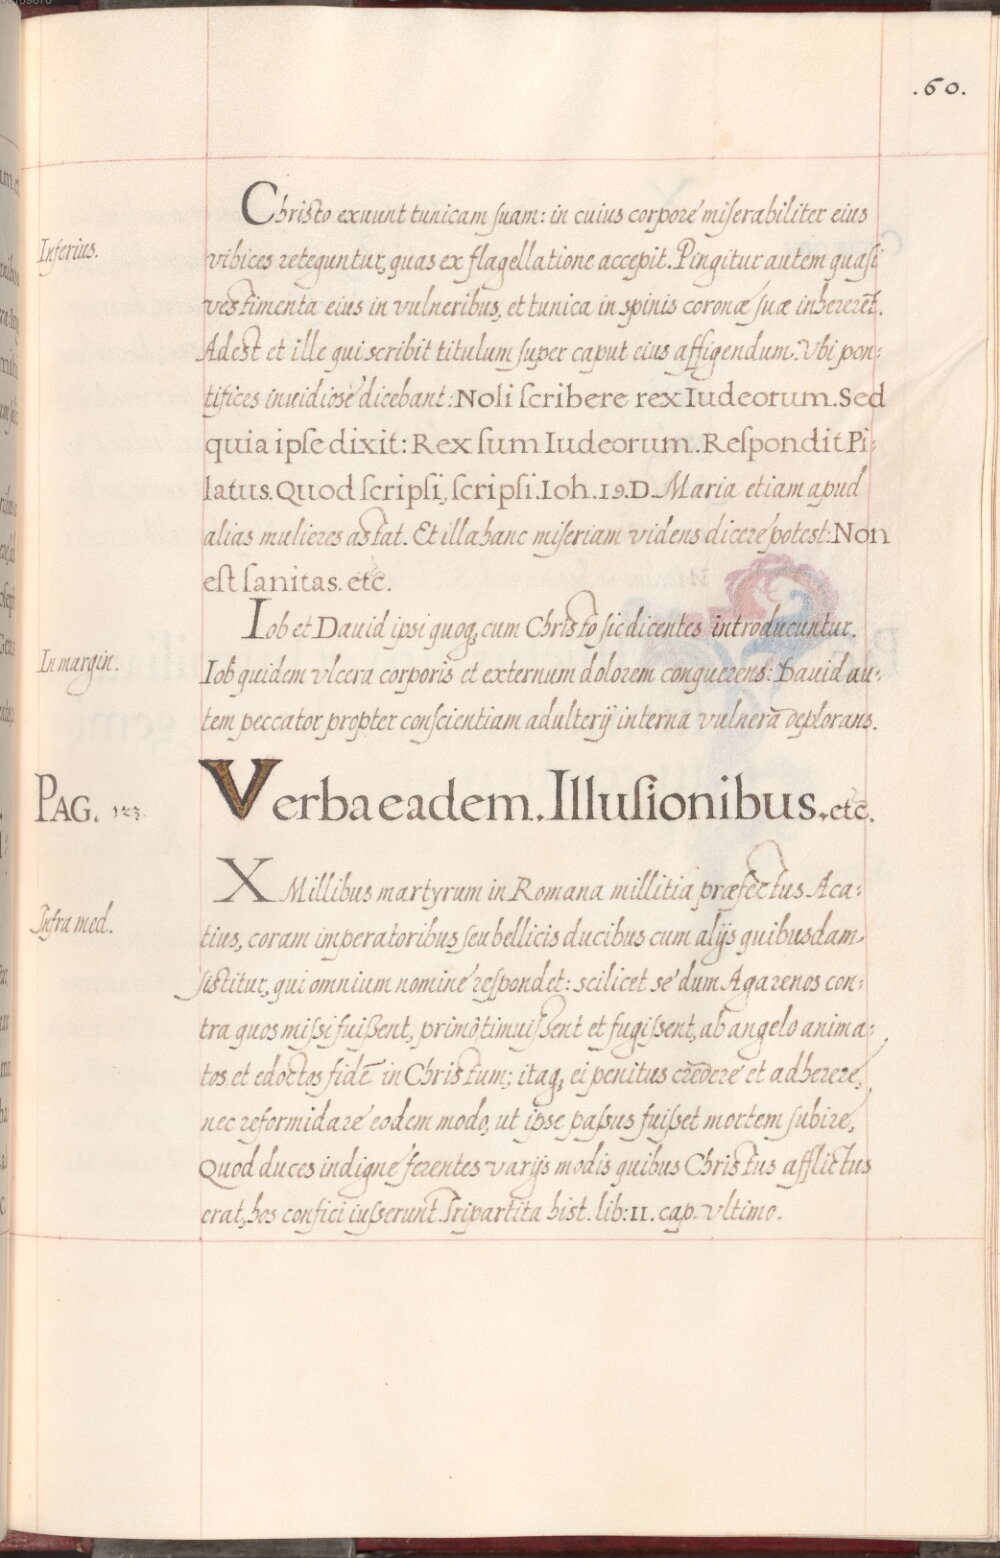 .60.
Christo exuunt tunicam ſuam: in cuius corpore miſerabiliter eius
Inferius.
vibices reteguntur, quas ex flagellatione accepit. Pingitur autem quaſi
vestimenta eius in vulneribus, et tunica in spinis coronæ ſuæ inhererēt.
Adest et ille qui scribit titulum ſuper caput eius affigendum. Vbi pon:
tifices inuidiosè dicebant: Noli ſcribere rex Iudeorum. Sed
quia ipſe dixit: Rex ſum Iudeorum. Reſpondit Pi:
latus. Quod ſcripſi, ſcripſi. Ioh. 19. D. Maria etiam apud
alias mulieres astat. Et illa hanc miſeriam videns dicere potest: Non
eſt ſanitas. etc.
Iob et Dauid ipsi quoq, cum Christo ſic dicentes introducuntur.
In margin.
Iob quidem vlcera corporis et externum dolorem conquerens: Dauid au:
tem peccator propter conſcientiam adulterij interna vulnera deplorans.
PAG. 123.
Verba eadem. Illuſionibus. etc.
X Millibus martyrum in Romana millitia præfectus Aca:
Infra med.
tius, coram imperatoribus ſeu bellicis ducibus cum alijs quibusdam
ſistitur, qui omnium nomine reſpondet: scilicet se dum Agarenos con:
tra quos miſsi fuiſsent, primò timuiſsent et fugiſsent, ab angelo anima:
tos et edoctos fidē in Christum; itaq, ei penitus credere et adherere,
nec reformidare eodem modo, ut ipse paſsus fuiſset mortem ſubire,
Quod duces indigne ferentes varijs modis quibus Christus afflictus
erat, hos confici iuſserunt. Tripartita hist. lib: 11. cap. vltimo.